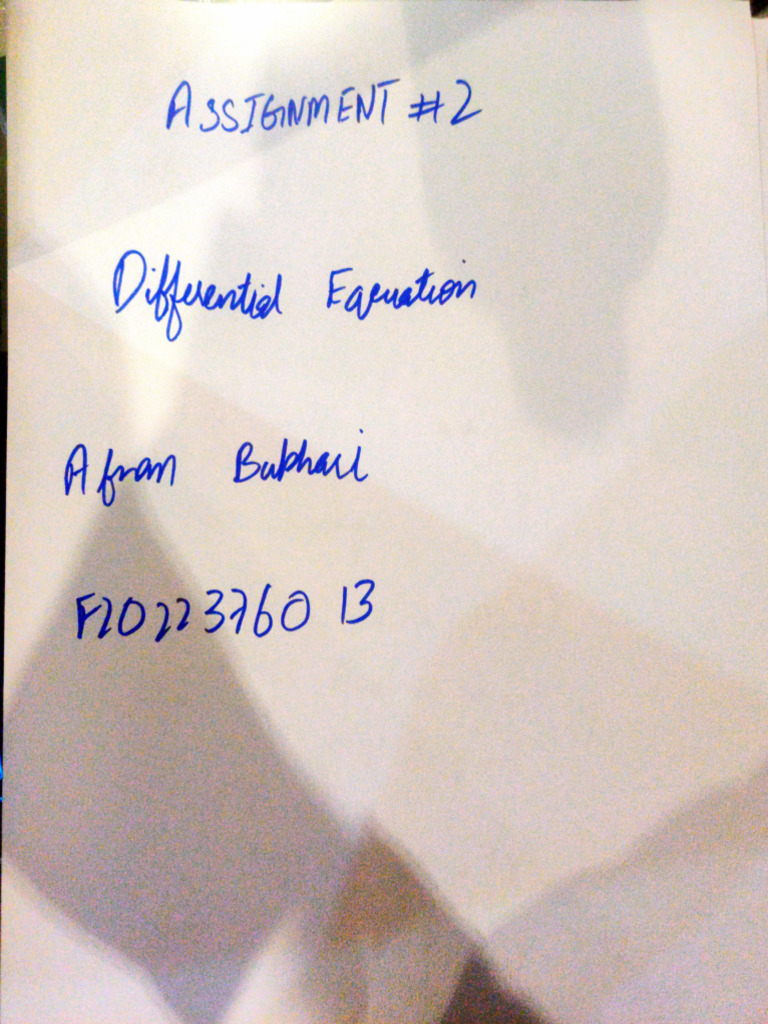 ASSIGNMENT #2
Differential Equation
Afnan Bukhari
F2022376013